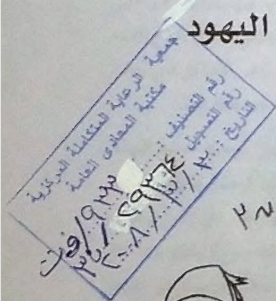 اليهود
جمعية الرعاية المتكاملة المركزية
مكتبة المعادى العامة
رقم التصنيف : ٩٣٣/ف و ت
رقم التسجيل : ٢٩٣٦٤
التاريخ : ٣٠/٣/٢٠٠٨